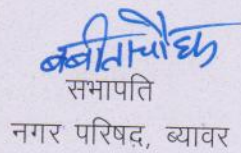 बबीता चौहान
सभापति
नगर परिषद, ब्यावर